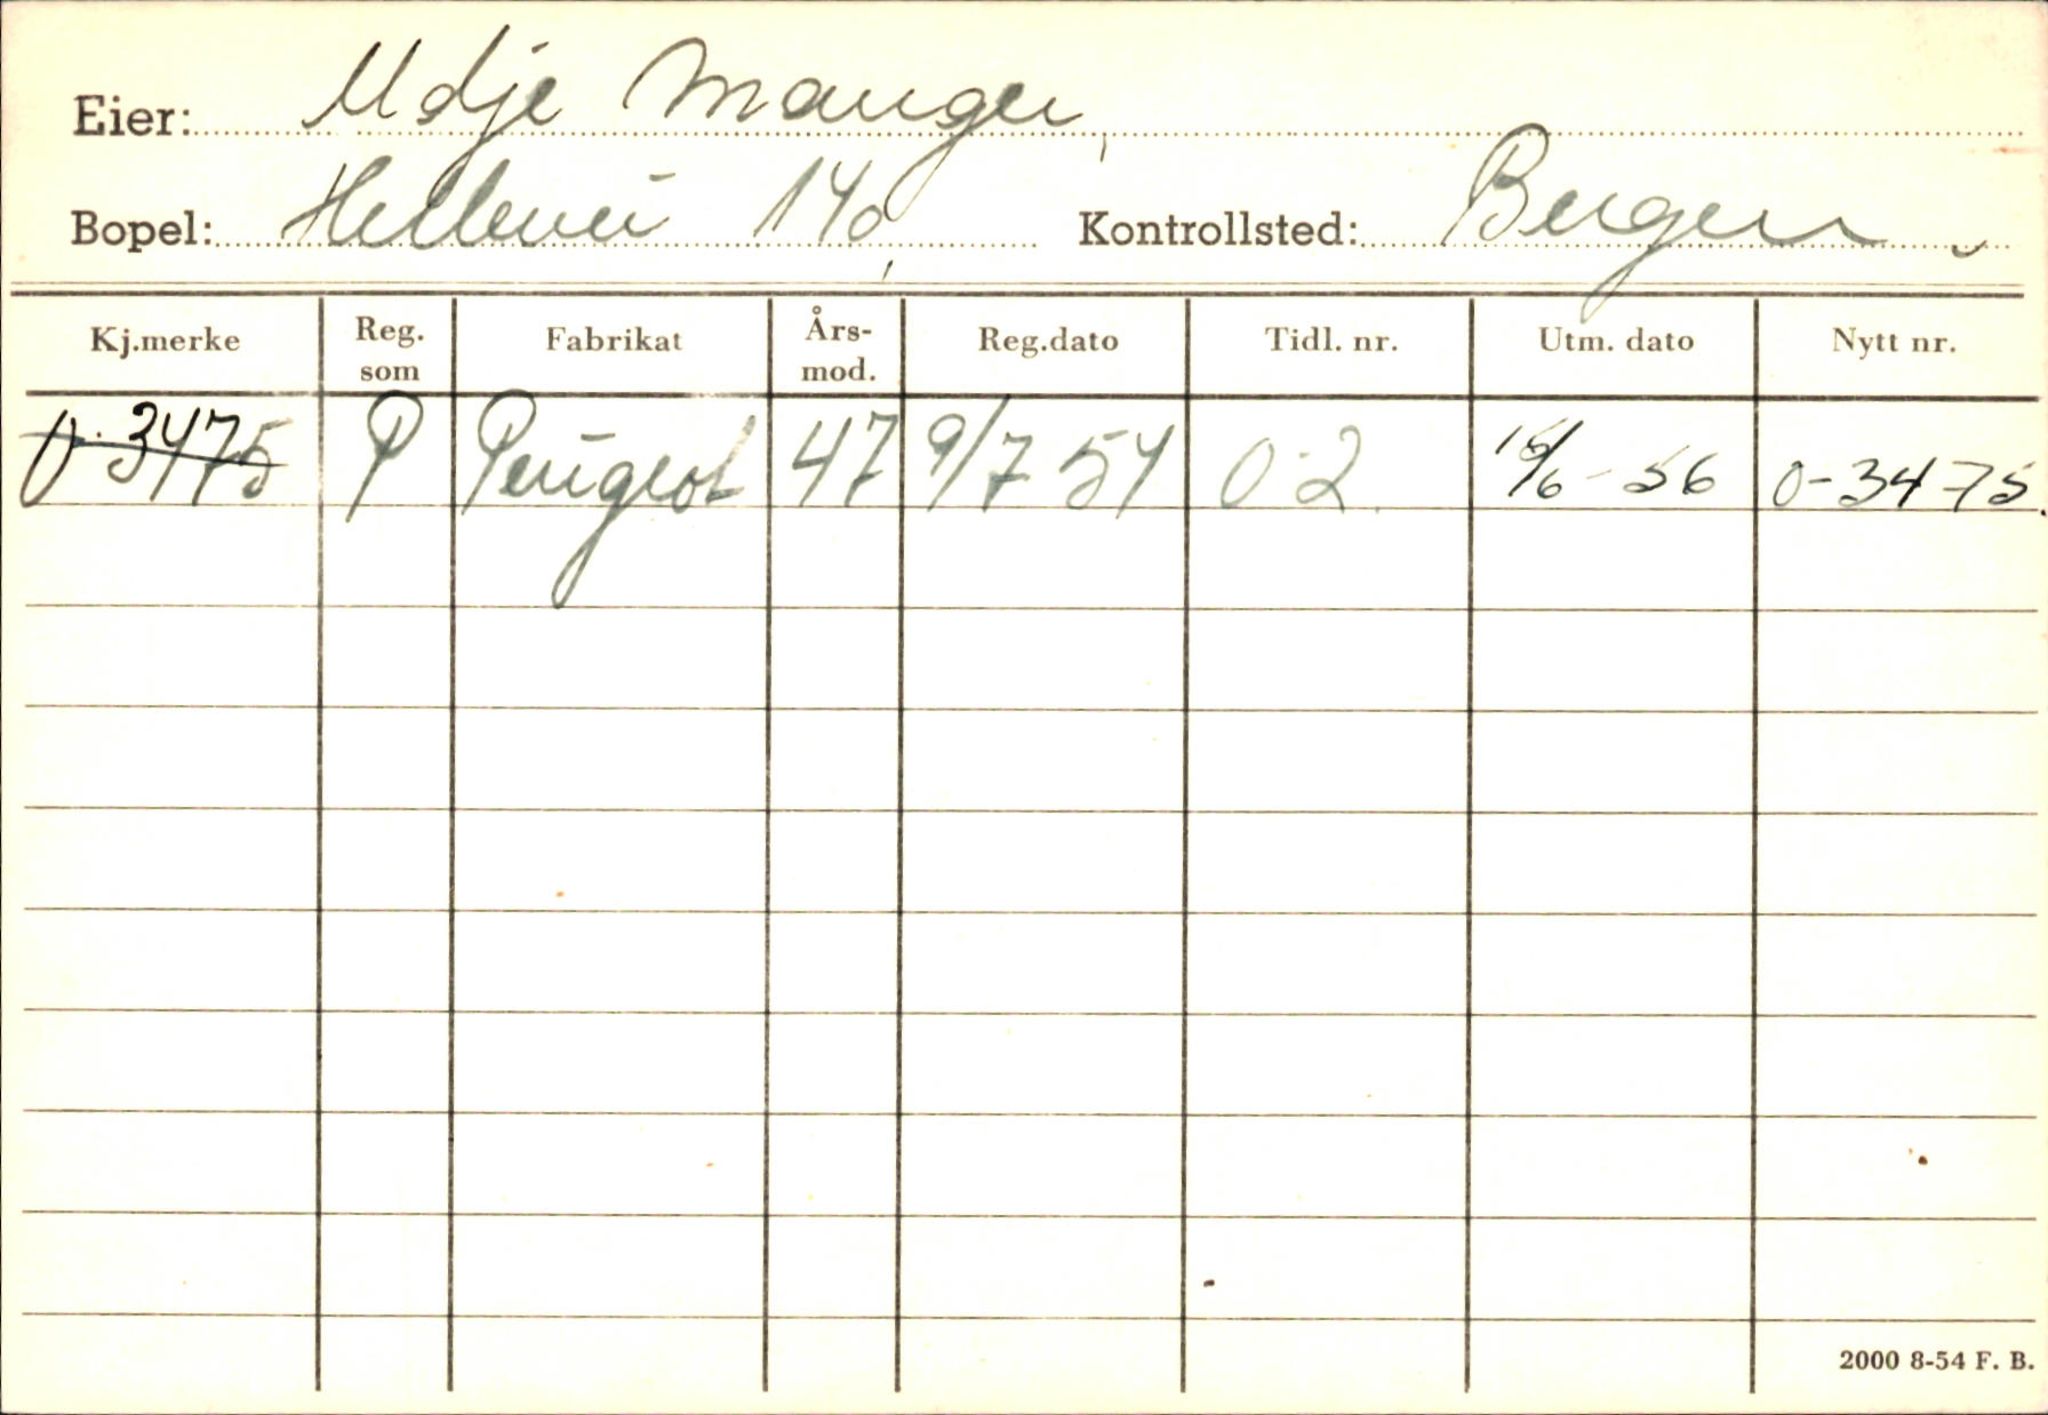 Eier: Mdje Manger,
Bopel: Hellevei 140, Kontrollsted: Bergen
Kj.merke Reg. som Fabrikat Års-mod. Reg.dato Tidl. nr. Utm. dato Nytt nr.
O-3475 P Peugeot 47 9/7 54 O-2 /6-56 O-3475.
2000 8-54 F. B.